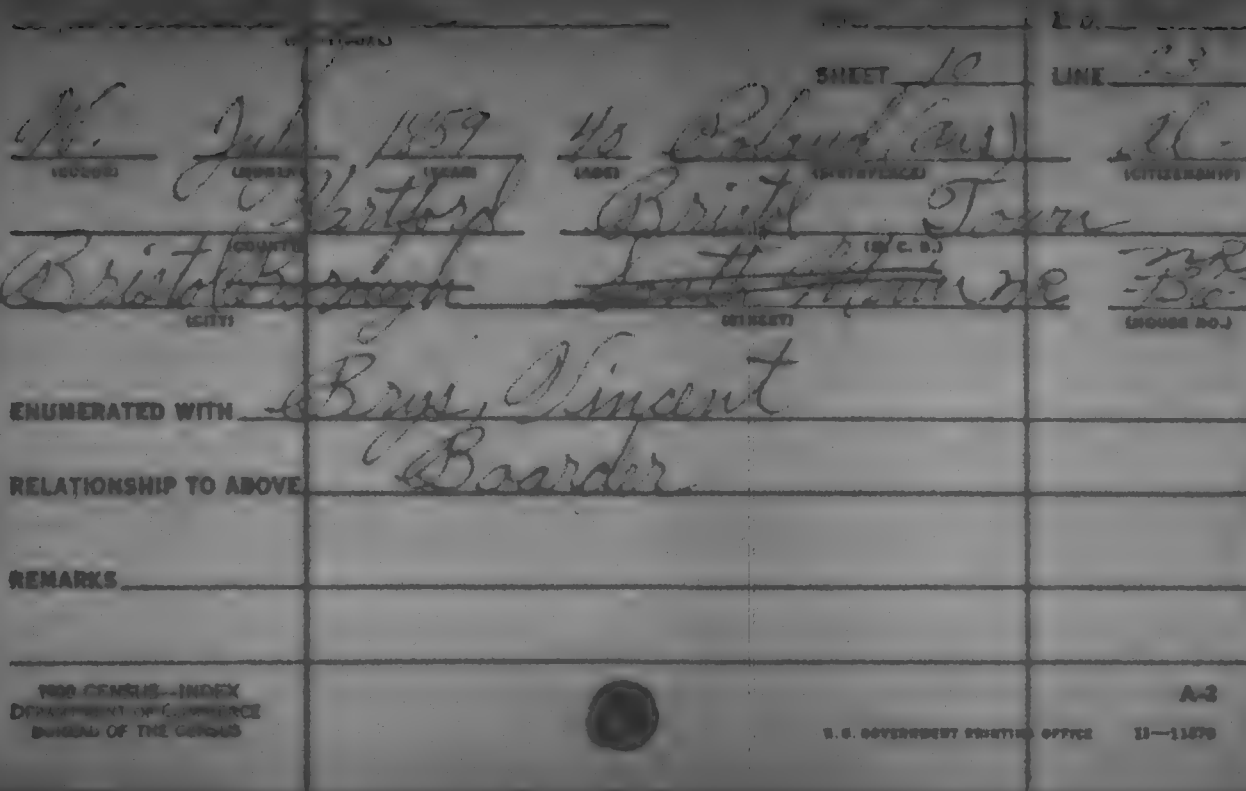 E. D.
SHEET 10 LINE 23
W. July 1859 40 Poland (Aus) Al -
(COLOR) (MONTH) (YEAR) (AGE) (BIRTHPLACE) (CITIZENSHIP)
Hartford Bristol Town
(COUNTY) (M. C. D.)
Bristol Borough South NR
(CITY) (STREET) (HOUSE NO.)
ENUMERATED WITH Brys, Vincent
RELATIONSHIP TO ABOVE Boarder
REMARKS
1900 CENSUS—INDEX
DEPARTMENT OF COMMERCE
BUREAU OF THE CENSUS
A-2
U.S. GOVERNMENT PRINTING OFFICE 11—11870